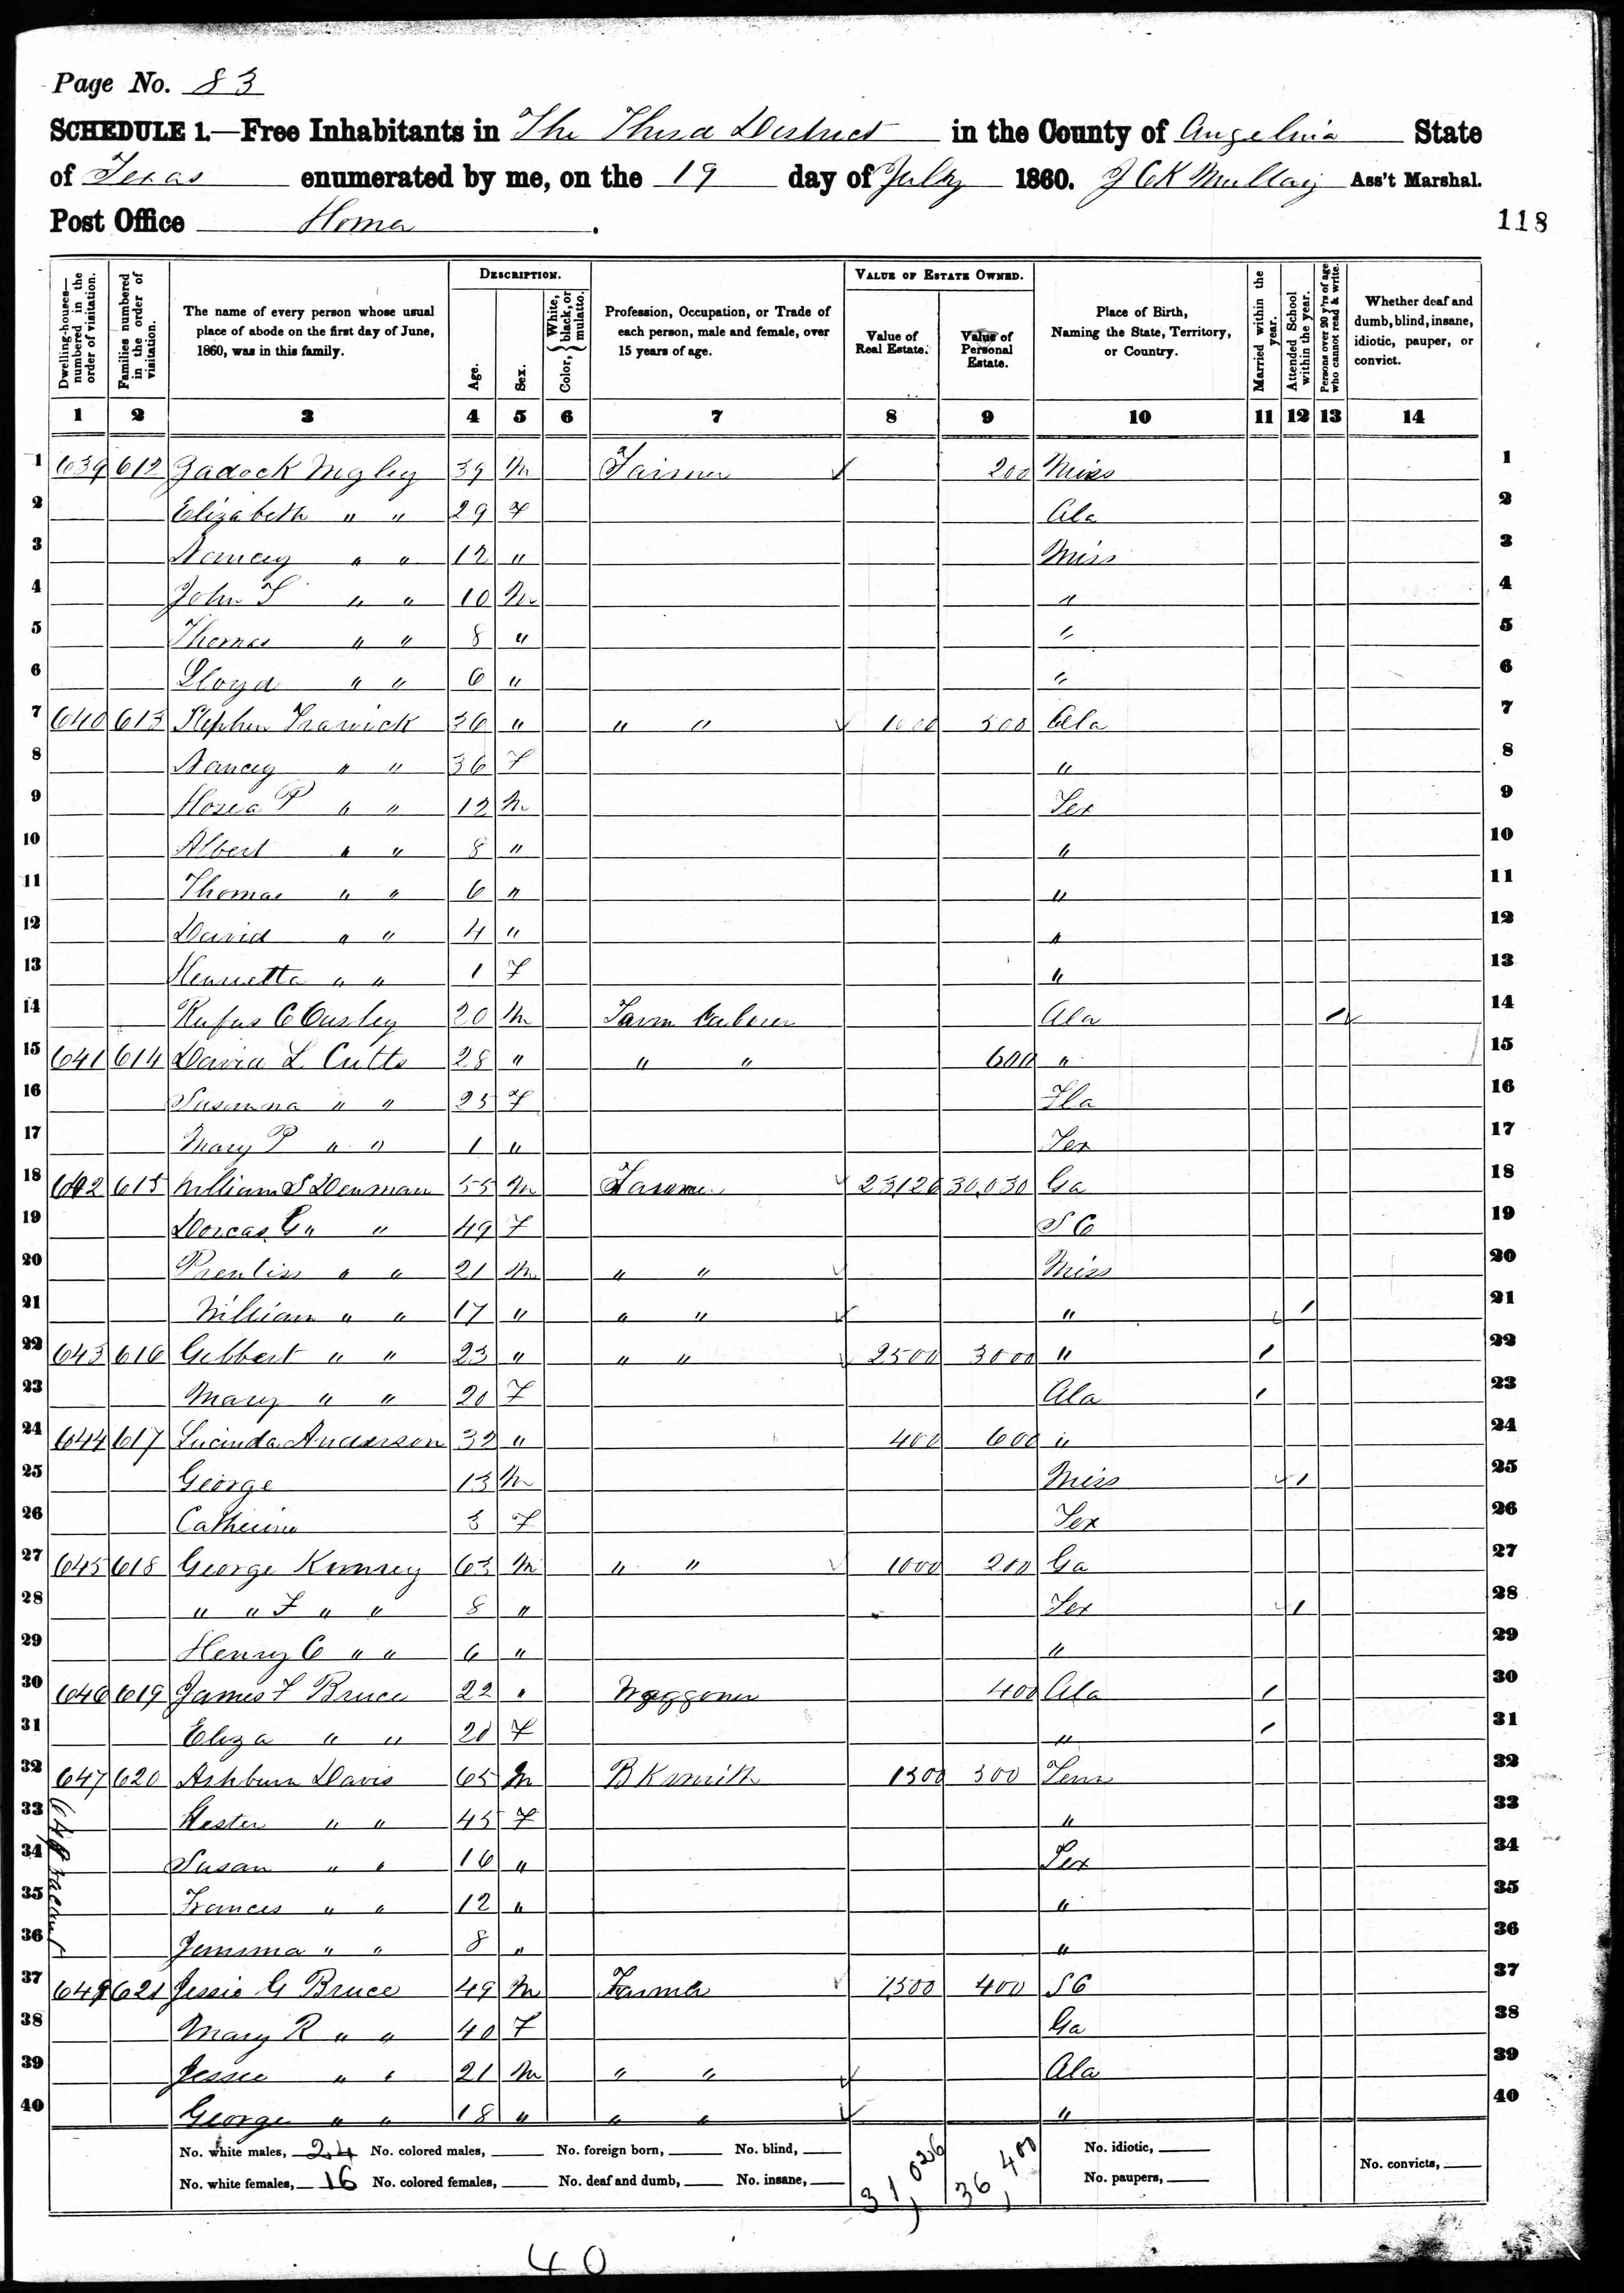 Page No. 83
SCHEDULE 1.—Free Inhabitants in The Third District in the County of Angelina State
of Texas enumerated by me, on the 19 day of July 1860. J C K Mullay Ass't Marshal.
Post Office Homer .
118
Dwelling-houses—numbered in the order of visitation.
Families numbered in the order of visitation.
The name of every person whose usual place of abode on the first day of June, 1860, was in this family.
DESCRIPTION.
Age.
Sex.
Color, { White, black, or mulatto.
Profession, Occupation, or Trade of each person, male and female, over 15 years of age.
VALUE OF ESTATE OWNED.
Value of Real Estate.
Value of Personal Estate.
Place of Birth, Naming the State, Territory, or Country.
Married within the year.
Attended School within the year.
Persons over 20 y'rs of age who cannot read & write.
Whether deaf and dumb, blind, insane, idiotic, pauper, or convict.
1 2 3 4 5 6 7 8 9 10 11 12 13 14
1 639 612 Zadock 39 M Farmer 200 Miss 1
2 Elizabeth " " 29 F Ala 2
3 Nancy " " 12 " Miss 3
4 John T " " 10 M " 4
5 Thomas " " 8 " " 5
6 Lloyd " " 6 " " 6
7 640 613 Stephen Trawick 36 " " " 1000 500 Ala 7
8 Nancy " " 36 F " 8
9 Hosea P " " 12 M Tex 9
10 Albert " " 8 " " 10
11 Thomas " " 6 " " 11
12 David " " 4 " " 12
13 Henrietta " " 1 F " 13
14 Rufus C Ousley 20 M Farm Laborer Ala / 14
15 641 614 David L Cutts 28 " " " 600 " 15
16 Susanna " " 25 F Fla 16
17 Mary P " " 1 " Tex 17
18 642 615 William S Denman 55 M Farmer 23,126 30,030 Ga 18
19 Dorcas G " " 49 F S C 19
20 Prentiss " " 21 M " " Miss 20
21 William " " 17 " " " " / 21
22 643 616 Gibbert " " 23 " " " 2500 3000 " / 22
23 Mary " " 20 F Ala / 23
24 644 617 Lucinda Anderson 32 " 400 600 " 24
25 George 13 M Miss 1 25
26 Catherine 3 F Tex 26
27 645 618 George Kimsey 63 M " " 1000 200 Ga 27
28 " " F " " 8 " Tex 1 28
29 Henry C " " 6 " " 29
30 646 619 James F Bruce 22 " Waggoner 400 Ala / 30
31 Eliza " " 20 F " / 31
32 647 620 Ashburn Davis 65 M B K smith 1300 300 Tenn 32
33 Hester " " 45 F " 33
34 Susan " " 16 " Tex 34
35 Frances " " 12 " " 35
36 Jemima " " 8 " " 36
648 vacant
37 649 621 Jessie G Bruce 49 M Farmer 1,500 400 S C 37
38 Mary R " " 40 F Ga 38
39 Jessee " " 21 M " " Ala 39
40 George " " 18 " " " " 40
No. white males, 24 No. colored males, No. foreign born, No. blind, No. idiotic,
No. white females, 16 No. colored females, No. deaf and dumb, No. insane, No. paupers, No. convicts,
31,026 36,400
40